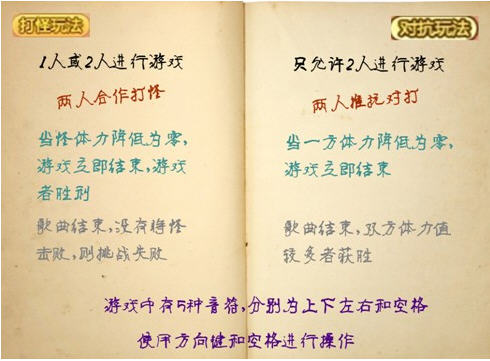 打怪玩法
1人或2人进行游戏
两人合作打怪
当怪体力降低为零，
游戏立即结束，游戏
者胜利
歌曲结束，没有将怪
击败，则挑战失败
对抗玩法
只允许2人进行游戏
两人抵抗对打
当一方体力降低为零，
游戏立即结束
歌曲结束，双方体力值
较多者获胜
游戏中有5种音符，分别为上下左右和空格
使用方向键和空格进行操作